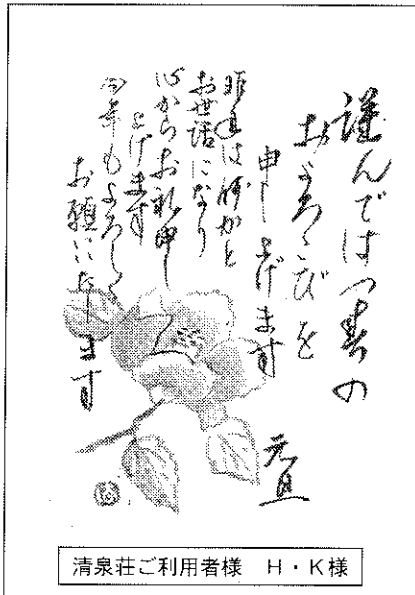 謹んではつ春の
およろこびを
申し上げます
昨年は何かと
お世話になり
心からお礼申し
上げます
今年もよろしく
お願いたします
元旦
清泉荘ご利用者様 H・K様